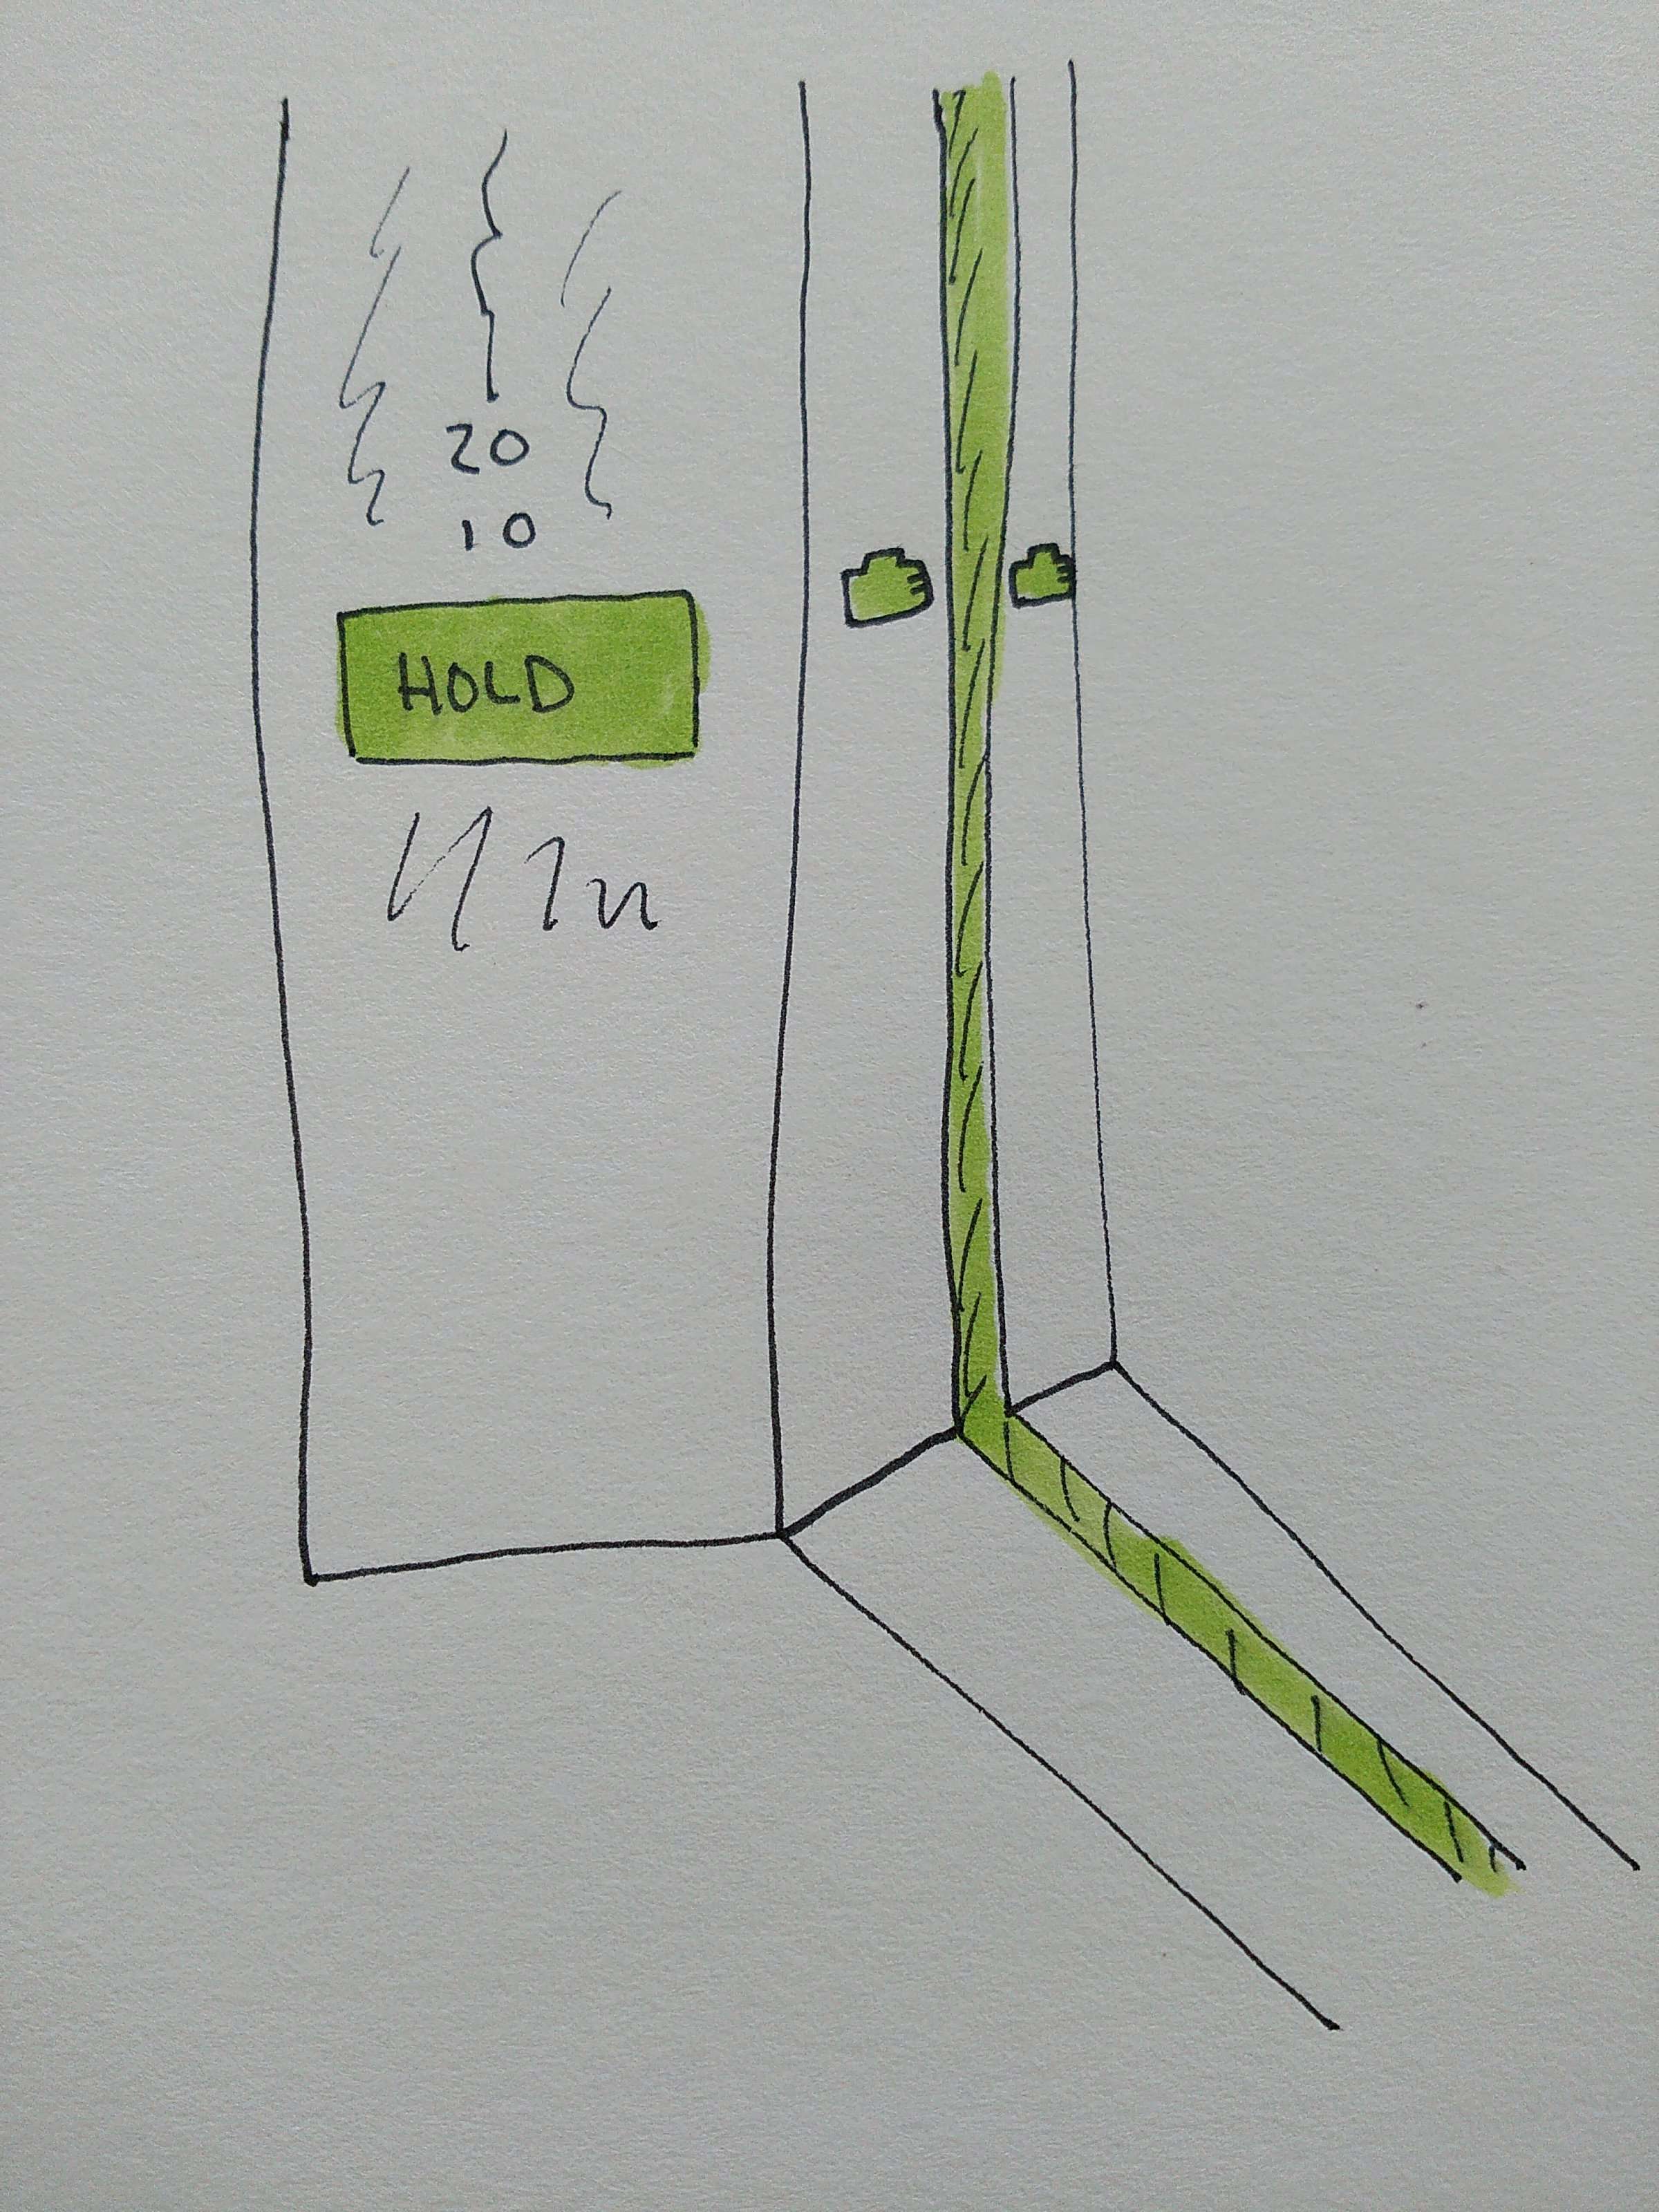 20
10
HOLD